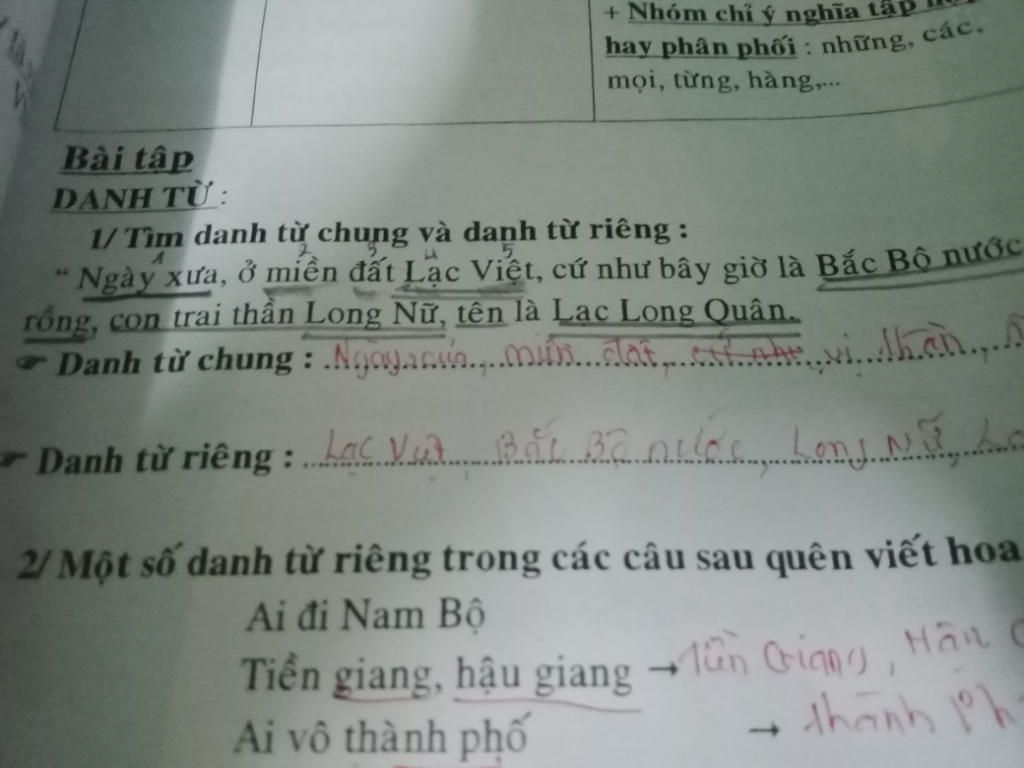 + Nhóm chỉ ý nghĩa tập
hay phân phối : những, các,
mọi, từng, hàng,...
Bài tập
DANH TỪ :
1/ Tìm danh từ chung và danh từ riêng :
“ Ngày xưa, ở miền đất Lạc Việt, cứ như bây giờ là Bắc Bộ nước
rồng, con trai thần Long Nữ, tên là Lạc Long Quân.
☞ Danh từ chung : Ngày xưa, miền đất, vị thần,
☞ Danh từ riêng : Lạc Việt, Bắc Bộ nước, Long Nữ,
2/ Một số danh từ riêng trong các câu sau quên viết hoa
Ai đi Nam Bộ
Tiền giang, hậu giang → Tiền Giang, Hậu
Ai vô thành phố → thành